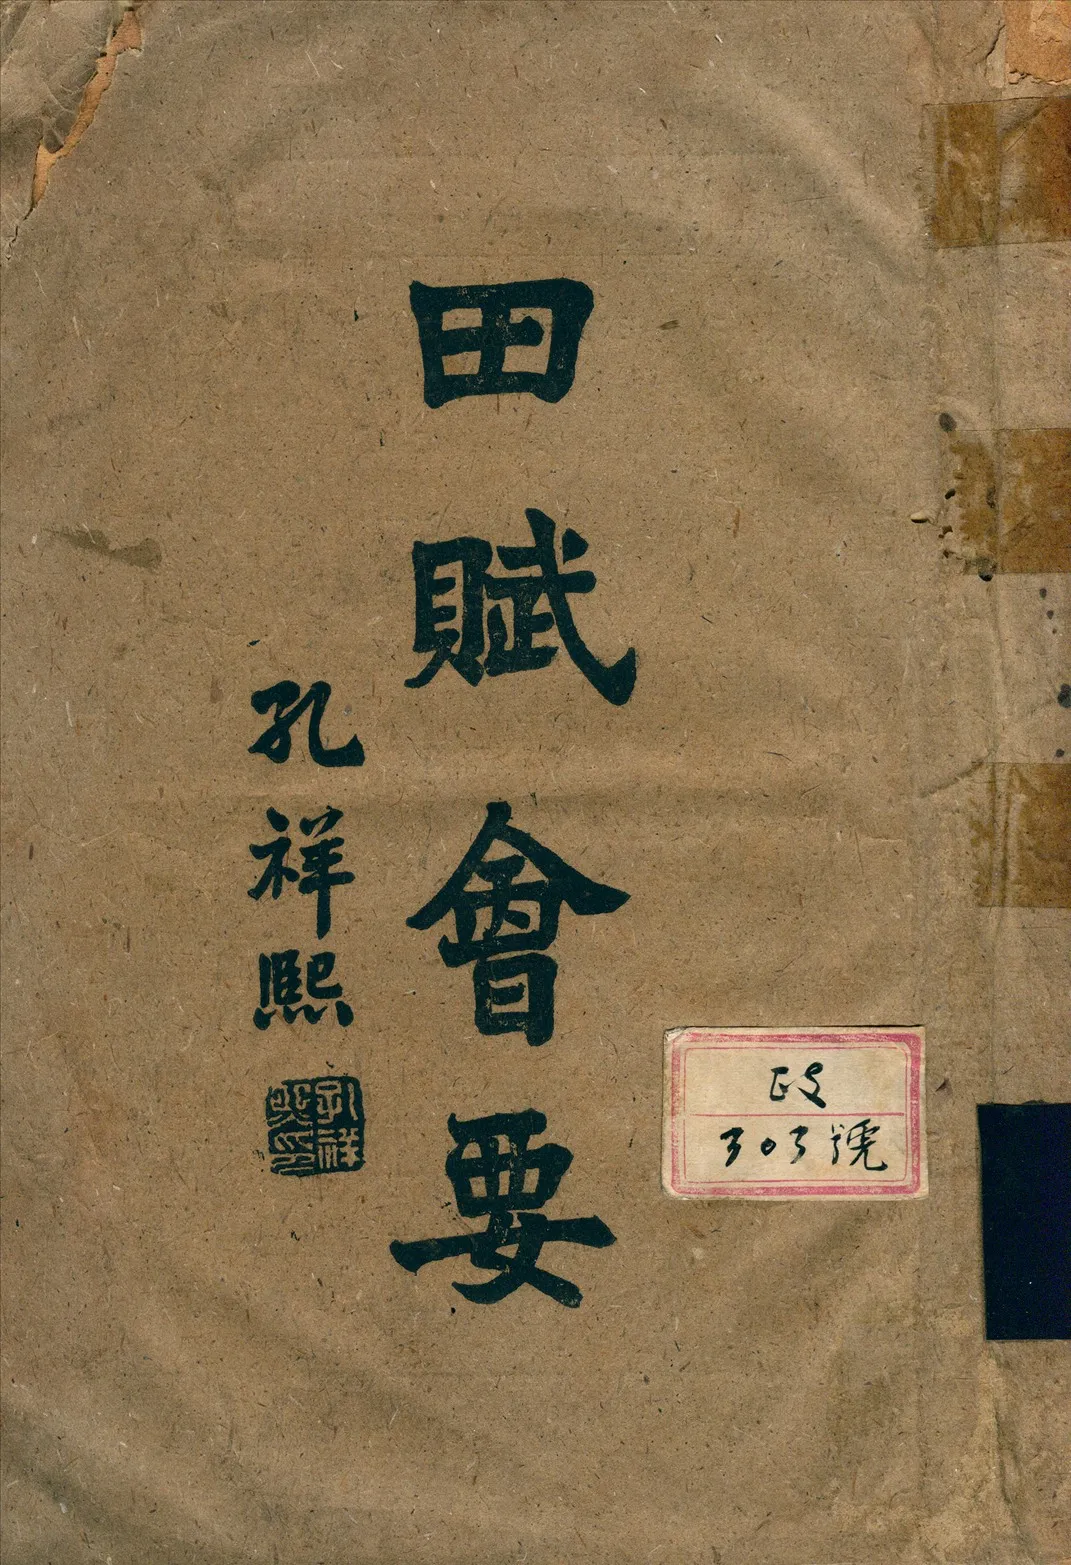 田賦會要
孔祥熙
孔祥
熙印
政
303號